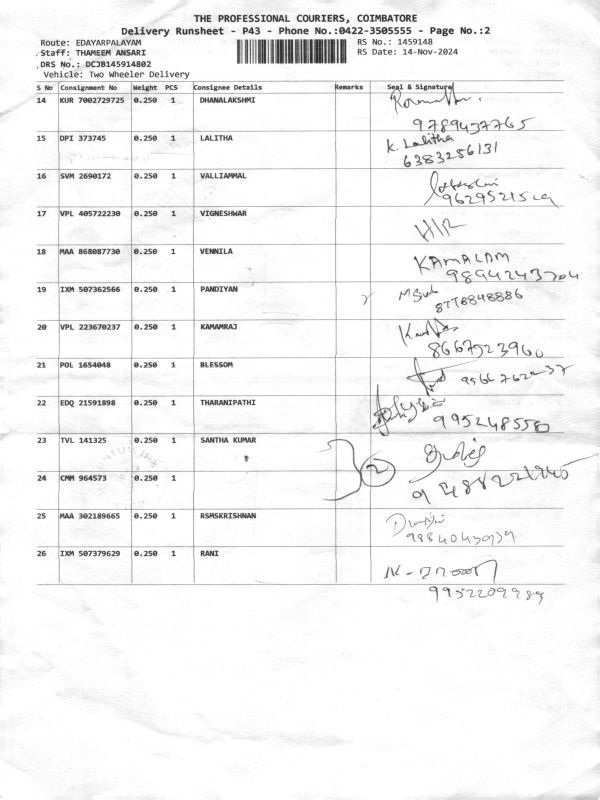 THE PROFESSIONAL COURIERS, COIMBATORE
Delivery Runsheet - P43 - Phone No.:0422-3505555 - Page No.:2
Route: EDAYARPALAYAM RS No.: 1459148
Staff: THAMEEM ANSARI RS Date: 14-Nov-2024
DRS No.: DCJB145914802
Vehicle: Two Wheeler Delivery
S No Consignment No Weight PCS Consignee Details Remarks Seal & Signature
14 KUR 7002729725 0.250 1 DHANALAKSHMI
9789437765
15 DPI 373745 0.250 1 LALITHA K. Lalitha
6383256131
16 SVM 2690172 0.250 1 VALLIAMMAL
9629521529
17 VPL 405722230 0.250 1 VIGNESHWAR H/R
18 MAA 868087730 0.250 1 VENNILA KAMALAM
9894243704
19 IXM 507362566 0.250 1 PANDIYAN
8778848886
20 VPL 223670237 0.250 1 KAMAMRAJ
8667523960
21 POL 1654048 0.250 1 BLESSOM
22 EDQ 21591898 0.250 1 THARANIPATHI
9952485580
23 TVL 141325 0.250 1 SANTHA KUMAR
2
24 CMM 964573 0.250 1
25 MAA 302189665 0.250 1 RSMSKRISHNAN
26 IXM 507379629 0.250 1 RANI
9952209989